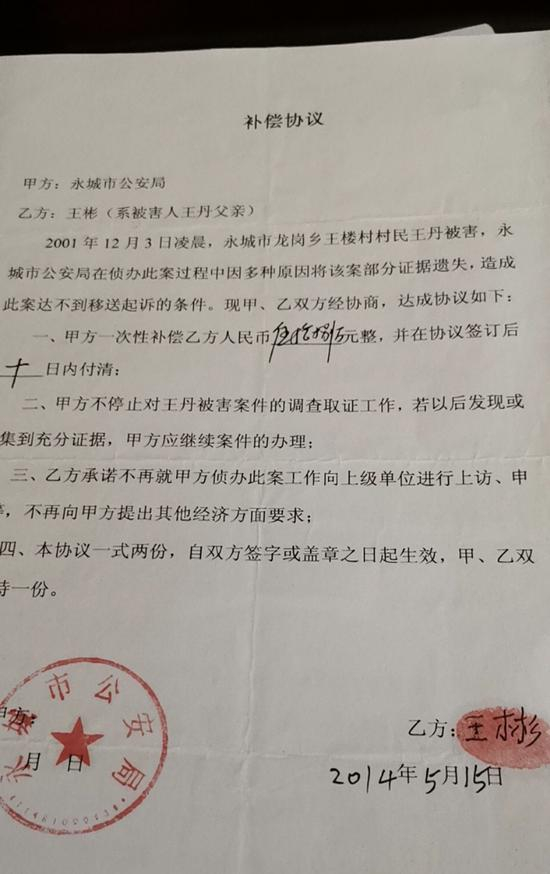 补偿协议
甲方：永城市公安局
乙方：王彬（系被害人王丹父亲）
2001年12月3日凌晨，永城市龙岗乡王楼村村民王丹被害，永
城市公安局在侦办此案过程中因多种原因将该案部分证据遗失，造成
此案达不到移送起诉的条件。现甲、乙双方经协商，达成协议如下：
一、甲方一次性补偿乙方人民币伍拾捌万元整，并在协议签订后
十日内付清；
二、甲方不停止对王丹被害案件的调查取证工作，若以后发现或
集到充分证据，甲方应继续案件的办理；
三、乙方承诺不再就甲方侦办此案工作向上级单位进行上访、申
等，不再向甲方提出其他经济方面要求；
四、本协议一式两份，自双方签字或盖章之日起生效，甲、乙双
持一份。
甲方：
永城市公安局
乙方：王彬
月 日
2014年5月15日